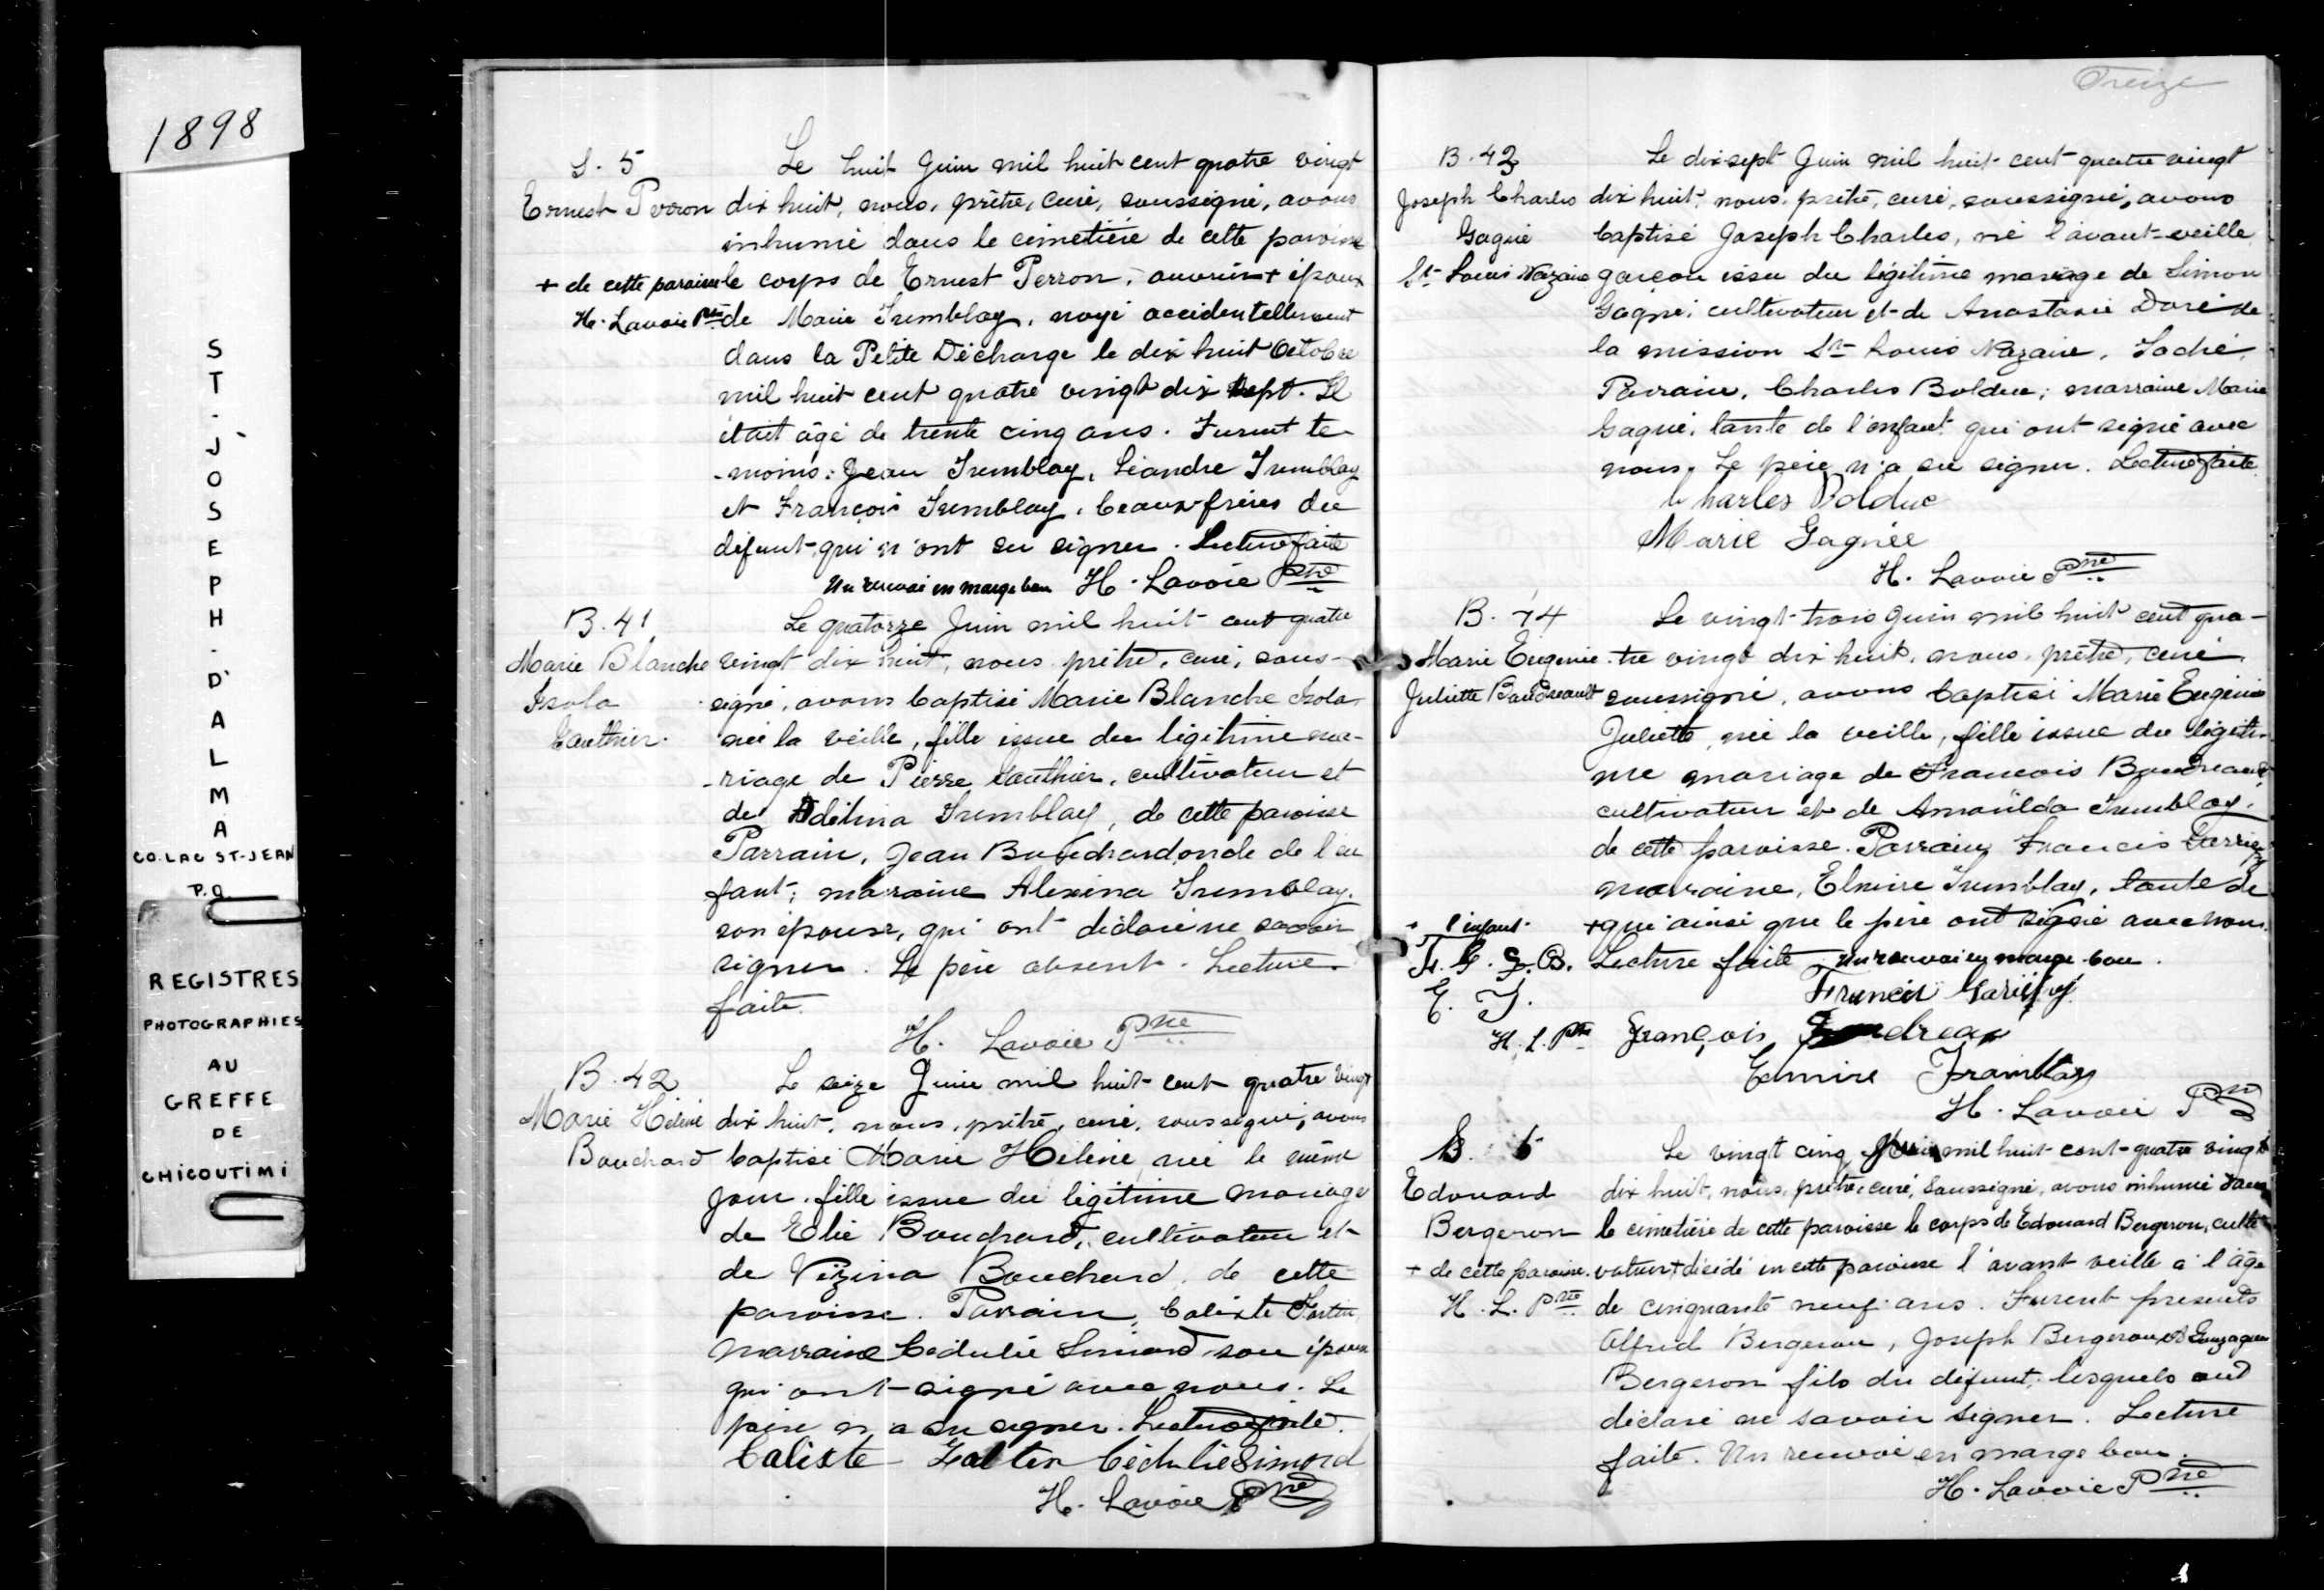 1898
ST-JOSEPH-D'ALMA
CO. LAC ST-JEAN
P.Q.
REGISTRES
PHOTOGRAPHIES
AU
GREFFE
DE
CHICOUTIMI
S. 5
Ernest Perron
+ de cette paroisse
H. Lavoie Ptre
Le huit Juin mil huit cent quatre vingt
dix huit, nous, prêtre, curé, soussigné, avons
inhumé dans le cimetière de cette paroisse
le corps de Ernest Perron, ouvrier + époux
de Marie Tremblay, noyé accidentellement
dans la Petite Décharge le dix huit Octobre
mil huit cent quatre vingt dix sept. Il
était âgé de trente cinq ans. Furent té-
-moins: Jean Tremblay, Léandre Tremblay
et François Tremblay, beaux-frères du
défunt, qui n'ont su signer. Lecture faite
Un renvoi en marge bon H. Lavoie Ptre
B. 41
Marie Blanche
Isola
Gauthier.
Le quatorze Juin mil huit cent quatre
vingt dix huit, nous prêtre, curé, sous-
signé, avons baptisé Marie Blanche Isola
née la veille, fille issue du légitime ma-
-riage de Pierre Gauthier, cultivateur et
de Adélina Tremblay, de cette paroisse
Parrain, Jean Bouchard oncle de l'en
fant; marraine Alexina Tremblay.
son épouse, qui ont déclaré ne savoir
signer. Le père absent. Lecture
faite.
H. Lavoie Ptre
B. 42
Marie Hélène
Bouchard
Le seize Juin mil huit cent quatre vingt
dix huit, nous, prêtre, curé, soussigné, avons
baptisé Marie Hélène née le même
jour, fille issue du légitime mariage
de Elie Bouchard, cultivateur et
de Vizina Bouchard, de cette
paroisse. Parrain, Calixte Fortin
marraine Cédulie Simard son épouse
qui ont signé avec nous. Le
père n'a su signer. Lecture faite.
Calixte Cédulie Simard
H. Lavoie Ptre
Treize
B. 43
Joseph Charles
Gagné
St Louis Nazaire
Le dix sept Juin mil huit cent quatre vingt
dix huit, nous, prêtre, curé, soussigné, avons
baptisé Joseph Charles, né l'avant-veille
garçon issu du légitime mariage de Simon
Gagné, cultivateur et de Anastasie Doré de
la mission St Louis Nazaire, Taché,
Parrain, Charles Bolduc; marraine Marie
Gagné, tante de l'enfant qui ont signé avec
nous. Le père n'a su signer. Lecture faite.
Charles Bolduc
Marie Gagnée
H. Lavoie Ptre
B. 44
Marie Eugénie
Juliette Boudreault
Le vingt-trois Juin mil huit cent qua-
tre vingt dix huit, nous, prêtre, curé
soussigné, avons baptisé Marie Eugénie
Juliette, née la veille, fille issue du légiti-
me mariage de François Boudreault
cultivateur et de Amanda Tremblay,
de cette paroisse. Parrain Francis Garriépy
marraine, Elmire Tremblay, tante de
+ l'enfant
+ qui ainsi que le père ont signé avec nous.
F. G. F. B.
Lecture faite. Un renvoi en marge bon.
E. T.
Francis Gariépy
H. L. Ptre
François Boudreau
Elmire Tremblay
H. Lavoie Ptre
S. 6
Edouard
Bergeron
+ de cette paroisse.
H. L. Ptre
Le vingt cinq Juin mil huit cent quatre vingt
dix huit, nous, prêtre, curé, soussigné, avons inhumé dans
le cimetière de cette paroisse le corps de Edouard Bergeron, culti
vateur + décédé en cette paroisse l'avant veille à l'âge
de cinquante neuf ans. Furent présents
Alfred Bergeron, Joseph Bergeron et Gonzague
Bergeron fils du défunt, lesquels ont
déclaré ne savoir signer. Lecture
faite. Un renvoi en marge bon.
H. Lavoie Ptre